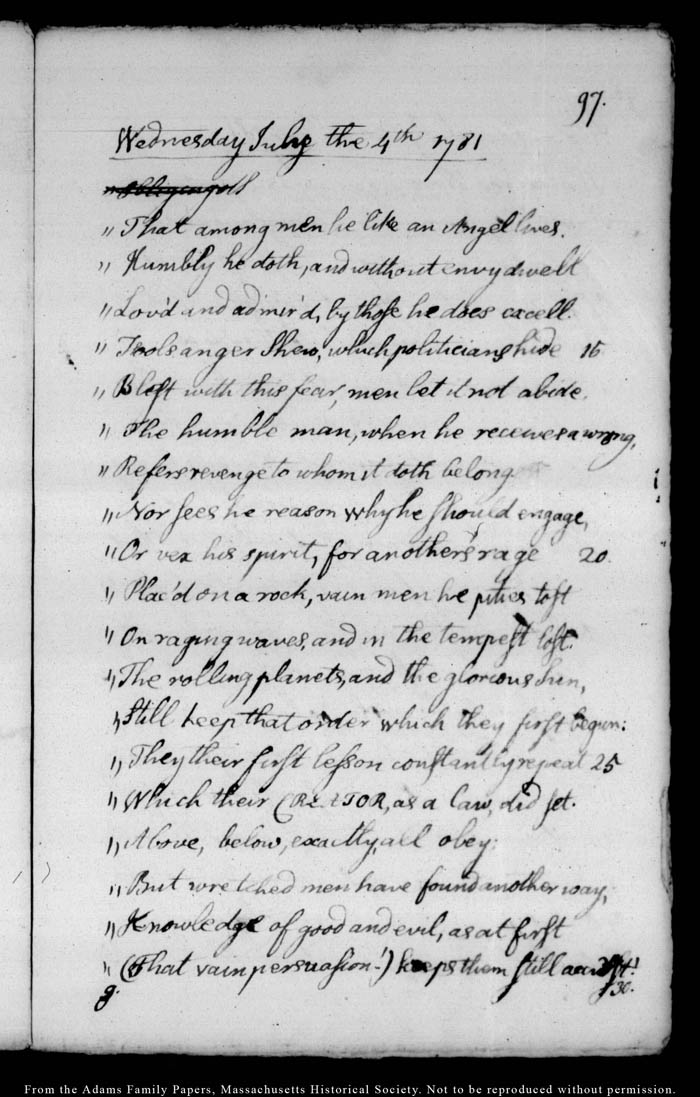 97.
Wednesday July the 4th 1781
" That among men he like an Angel lives.
" Humbly he doth, and without envy dwell
" Lov'd and admir'd, by those he does excell.
" Fools anger Shew, which politicians hide 15
" Blest with this fear, men let it not abide.
" The humble man, when he receives a wrong,
" Refers revenge to whom it doth belong
" Nor sees he reason why he should engage,
" Or vex his spirit, for another's rage 20.
" Plac'd on a rock, vain men he pities tost
" On raging waves, and in the tempest lost.
" The rolling planets, and the glorious Sun,
" Still keep that order which they first begun:
" They their first lesson constantly repeat 25
" Which their CREATOR, as a law, did set.
" Above, below, exactly, all obey:
" But wretched men have found another way,
" Knowledge of good and evil, as at first
" (That vain persuasion!) keeps them still accurst!
g. 30.
From the Adams Family Papers, Massachusetts Historical Society. Not to be reproduced without permission.